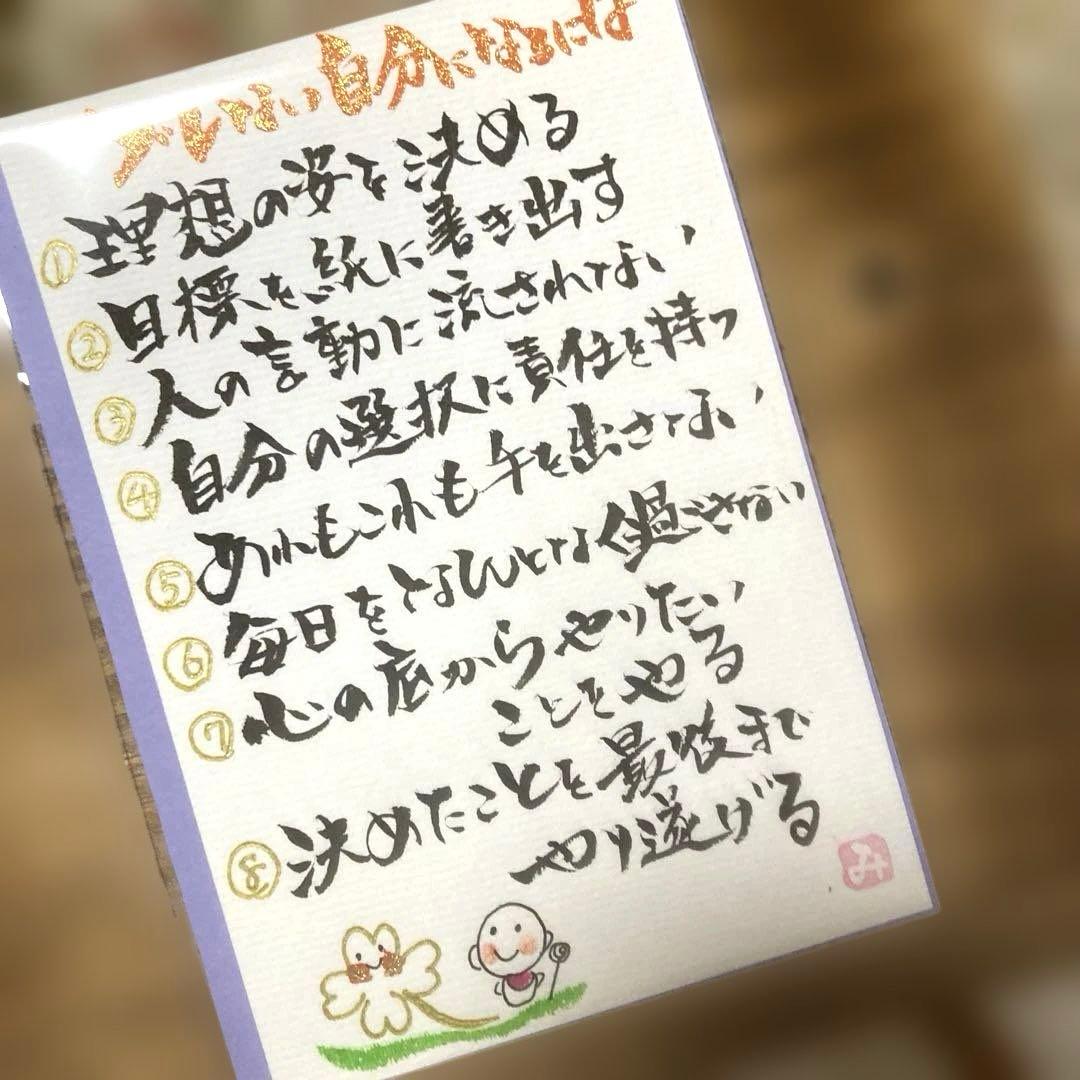 ブレない自分になるには
① 理想の姿を決める
② 目標を紙に書き出す
③ 人の言動に流されない
④ 自分の選択に責任を持つ
⑤ あれもこれも手を出さない
⑥ 毎日をなんとなく過ごさない
⑦ 心の底からやりたい
ことをやる
⑧ 決めたことを最後まで
やり遂げる
み